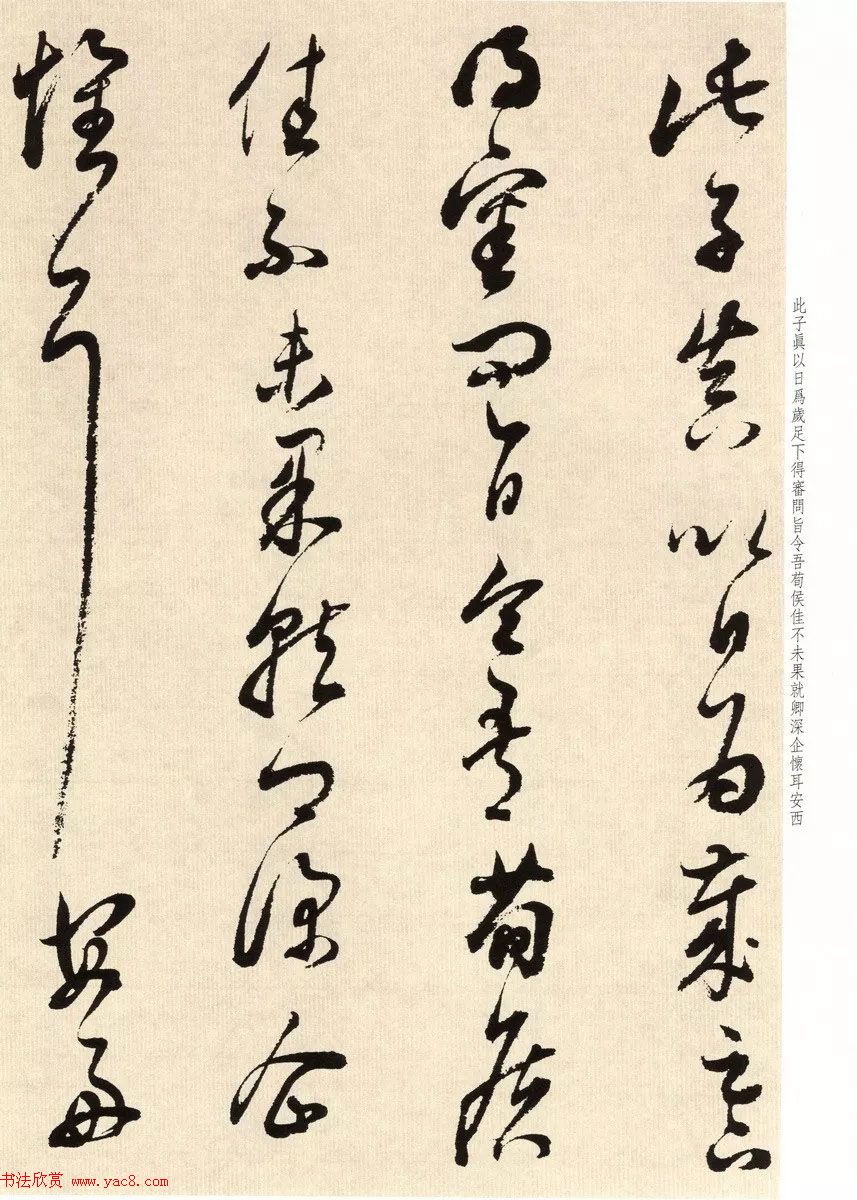 此子真以日為歲足下
得審問旨令吾荀侯
佳不未果就卿深企
懷耳安西
此子眞以日爲歲足下得審問旨令吾荀侯佳不未果就卿深企懷耳安西
书法欣赏 www.yac8.com